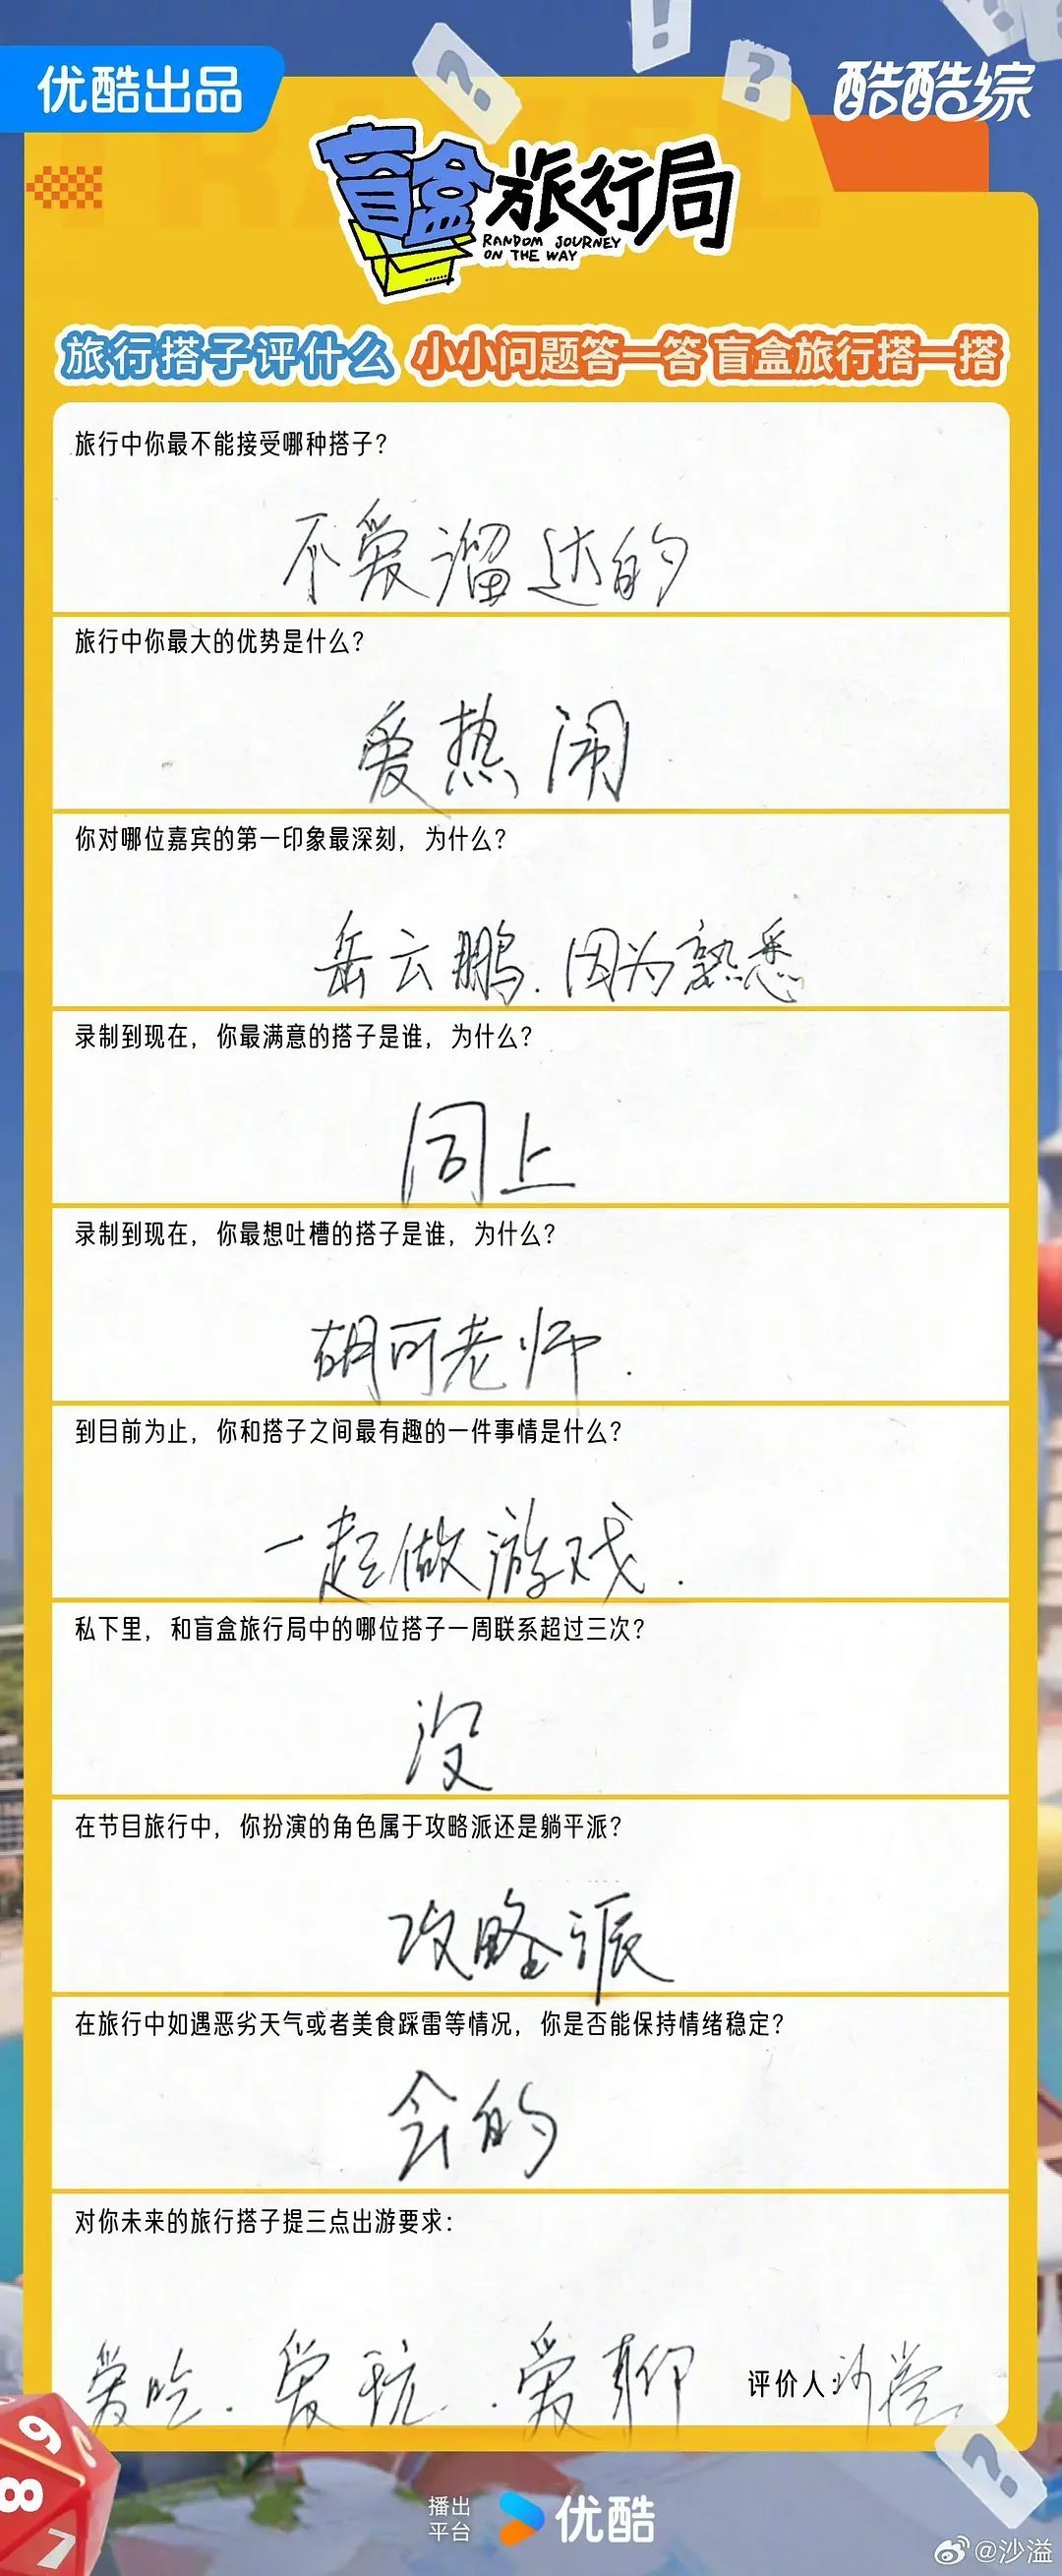 优酷出品
酷酷综
盲盒旅行局
RANDOM JOURNEY
ON THE WAY
旅行搭子评什么 小小问题答一答 盲盒旅行搭一搭
旅行中你最不能接受哪种搭子?
不爱溜达的
旅行中你最大的优势是什么?
爱热闹
你对哪位嘉宾的第一印象最深刻,为什么?
岳云鹏.因为熟悉
录制到现在,你最满意的搭子是谁,为什么?
同上
录制到现在,你最想吐槽的搭子是谁,为什么?
胡可老师.
到目前为止,你和搭子之间最有趣的一件事情是什么?
一起做游戏.
私下里,和盲盒旅行局中的哪位搭子一周联系超过三次?
没
在节目旅行中,你扮演的角色属于攻略派还是躺平派?
攻略派
在旅行中如遇恶劣天气或者美食踩雷等情况,你是否能保持情绪稳定?
会的
对你未来的旅行搭子提三点出游要求:
爱吃.爱玩.爱聊
评价人:沙溢
9
8
7
播出
平台
优酷
@沙溢